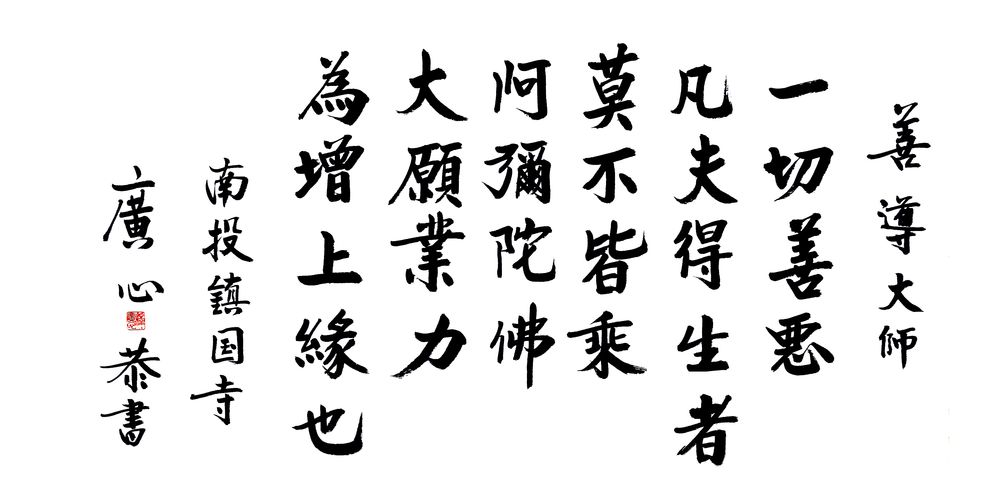 善導大师
一切善惡
凡夫得生者
莫不皆乘
阿彌陀佛
大願業力
為增上緣也
南投鎮国寺
廣心
恭書